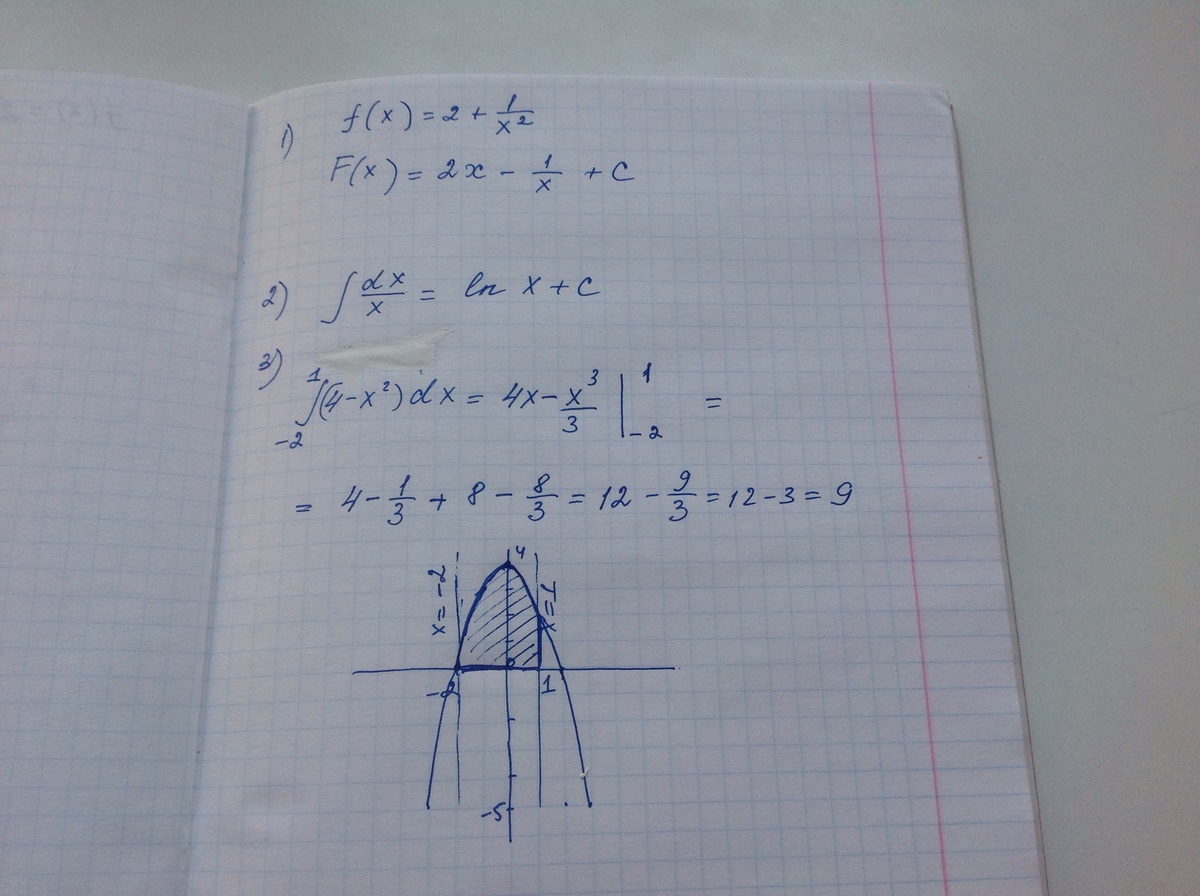 1) f(x) = 2 + 1/x²
F(x) = 2x - 1/x + C
2) ∫ dx/x = ln x + C
3)
∫₋₂¹ (4-x²) dx = 4x - x³/3 |₋₂¹ =
= 4 - 1/3 + 8 - 8/3 = 12 - 9/3 = 12 - 3 = 9
4
x = -2
x = 1
0
-2
1
-5